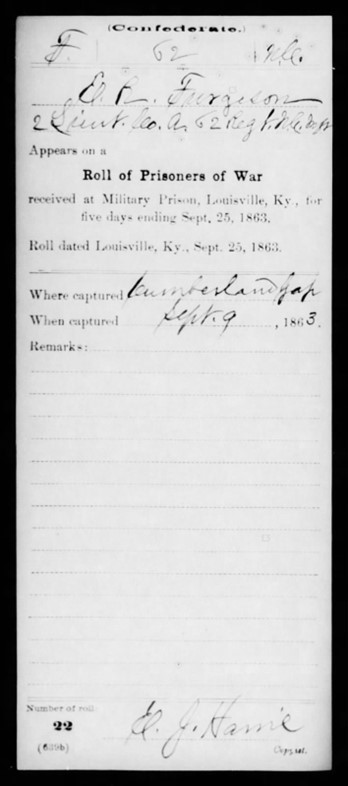 (Confederate.)
F. 62 N.C.
E. R. Furgison
2 Lieut. Co. A, 62 Reg't. N.C.
Appears on a
Roll of Prisoners of War
received at Military Prison, Louisville, Ky., for
five days ending Sept. 25, 1863.
Roll dated Louisville, Ky., Sept. 25, 1863.
Where captured Cumberland Gap
When captured Sept. 9, 1863.
Remarks:
Number of roll:
22
E. J. Harrie
(639b) Copyist.